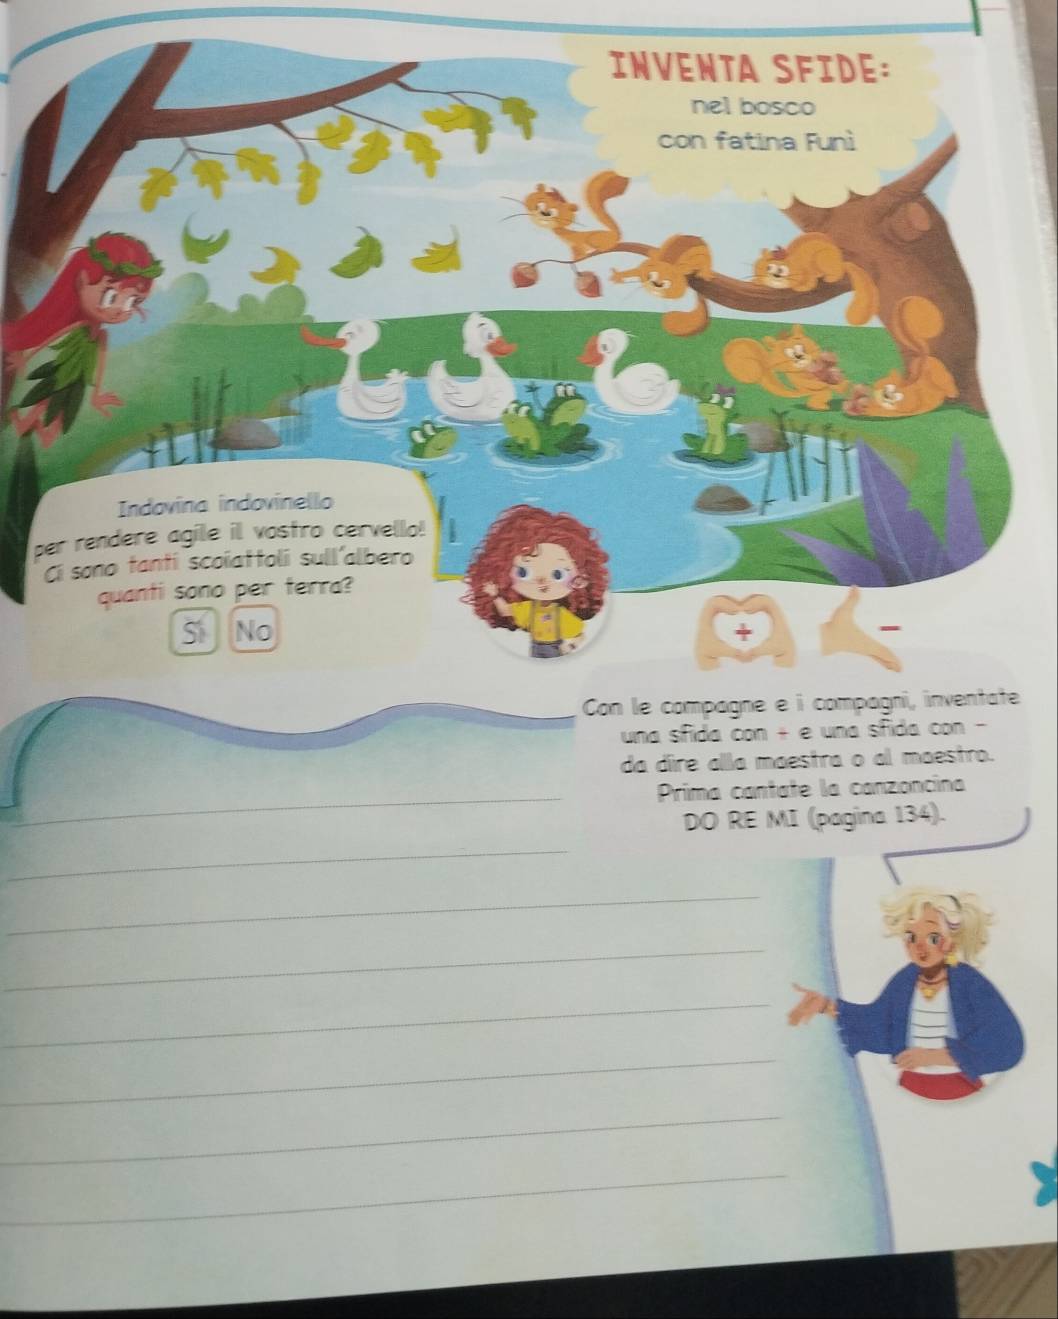 INVENTA SFIDE:
nel bosco
con fatina Funì
Indovina indovinello
per rendere agile il vostro cervello!
Ci sono tanti scoiattoli sull'albero
quanti sono per terra?
Sì No
+ -
Con le compagne e i compagni, inventate
una sfida con + e una sfida con -
da dire alla maestra o al maestro.
Prima cantate la canzoncina
DO RE MI (pagina 134).